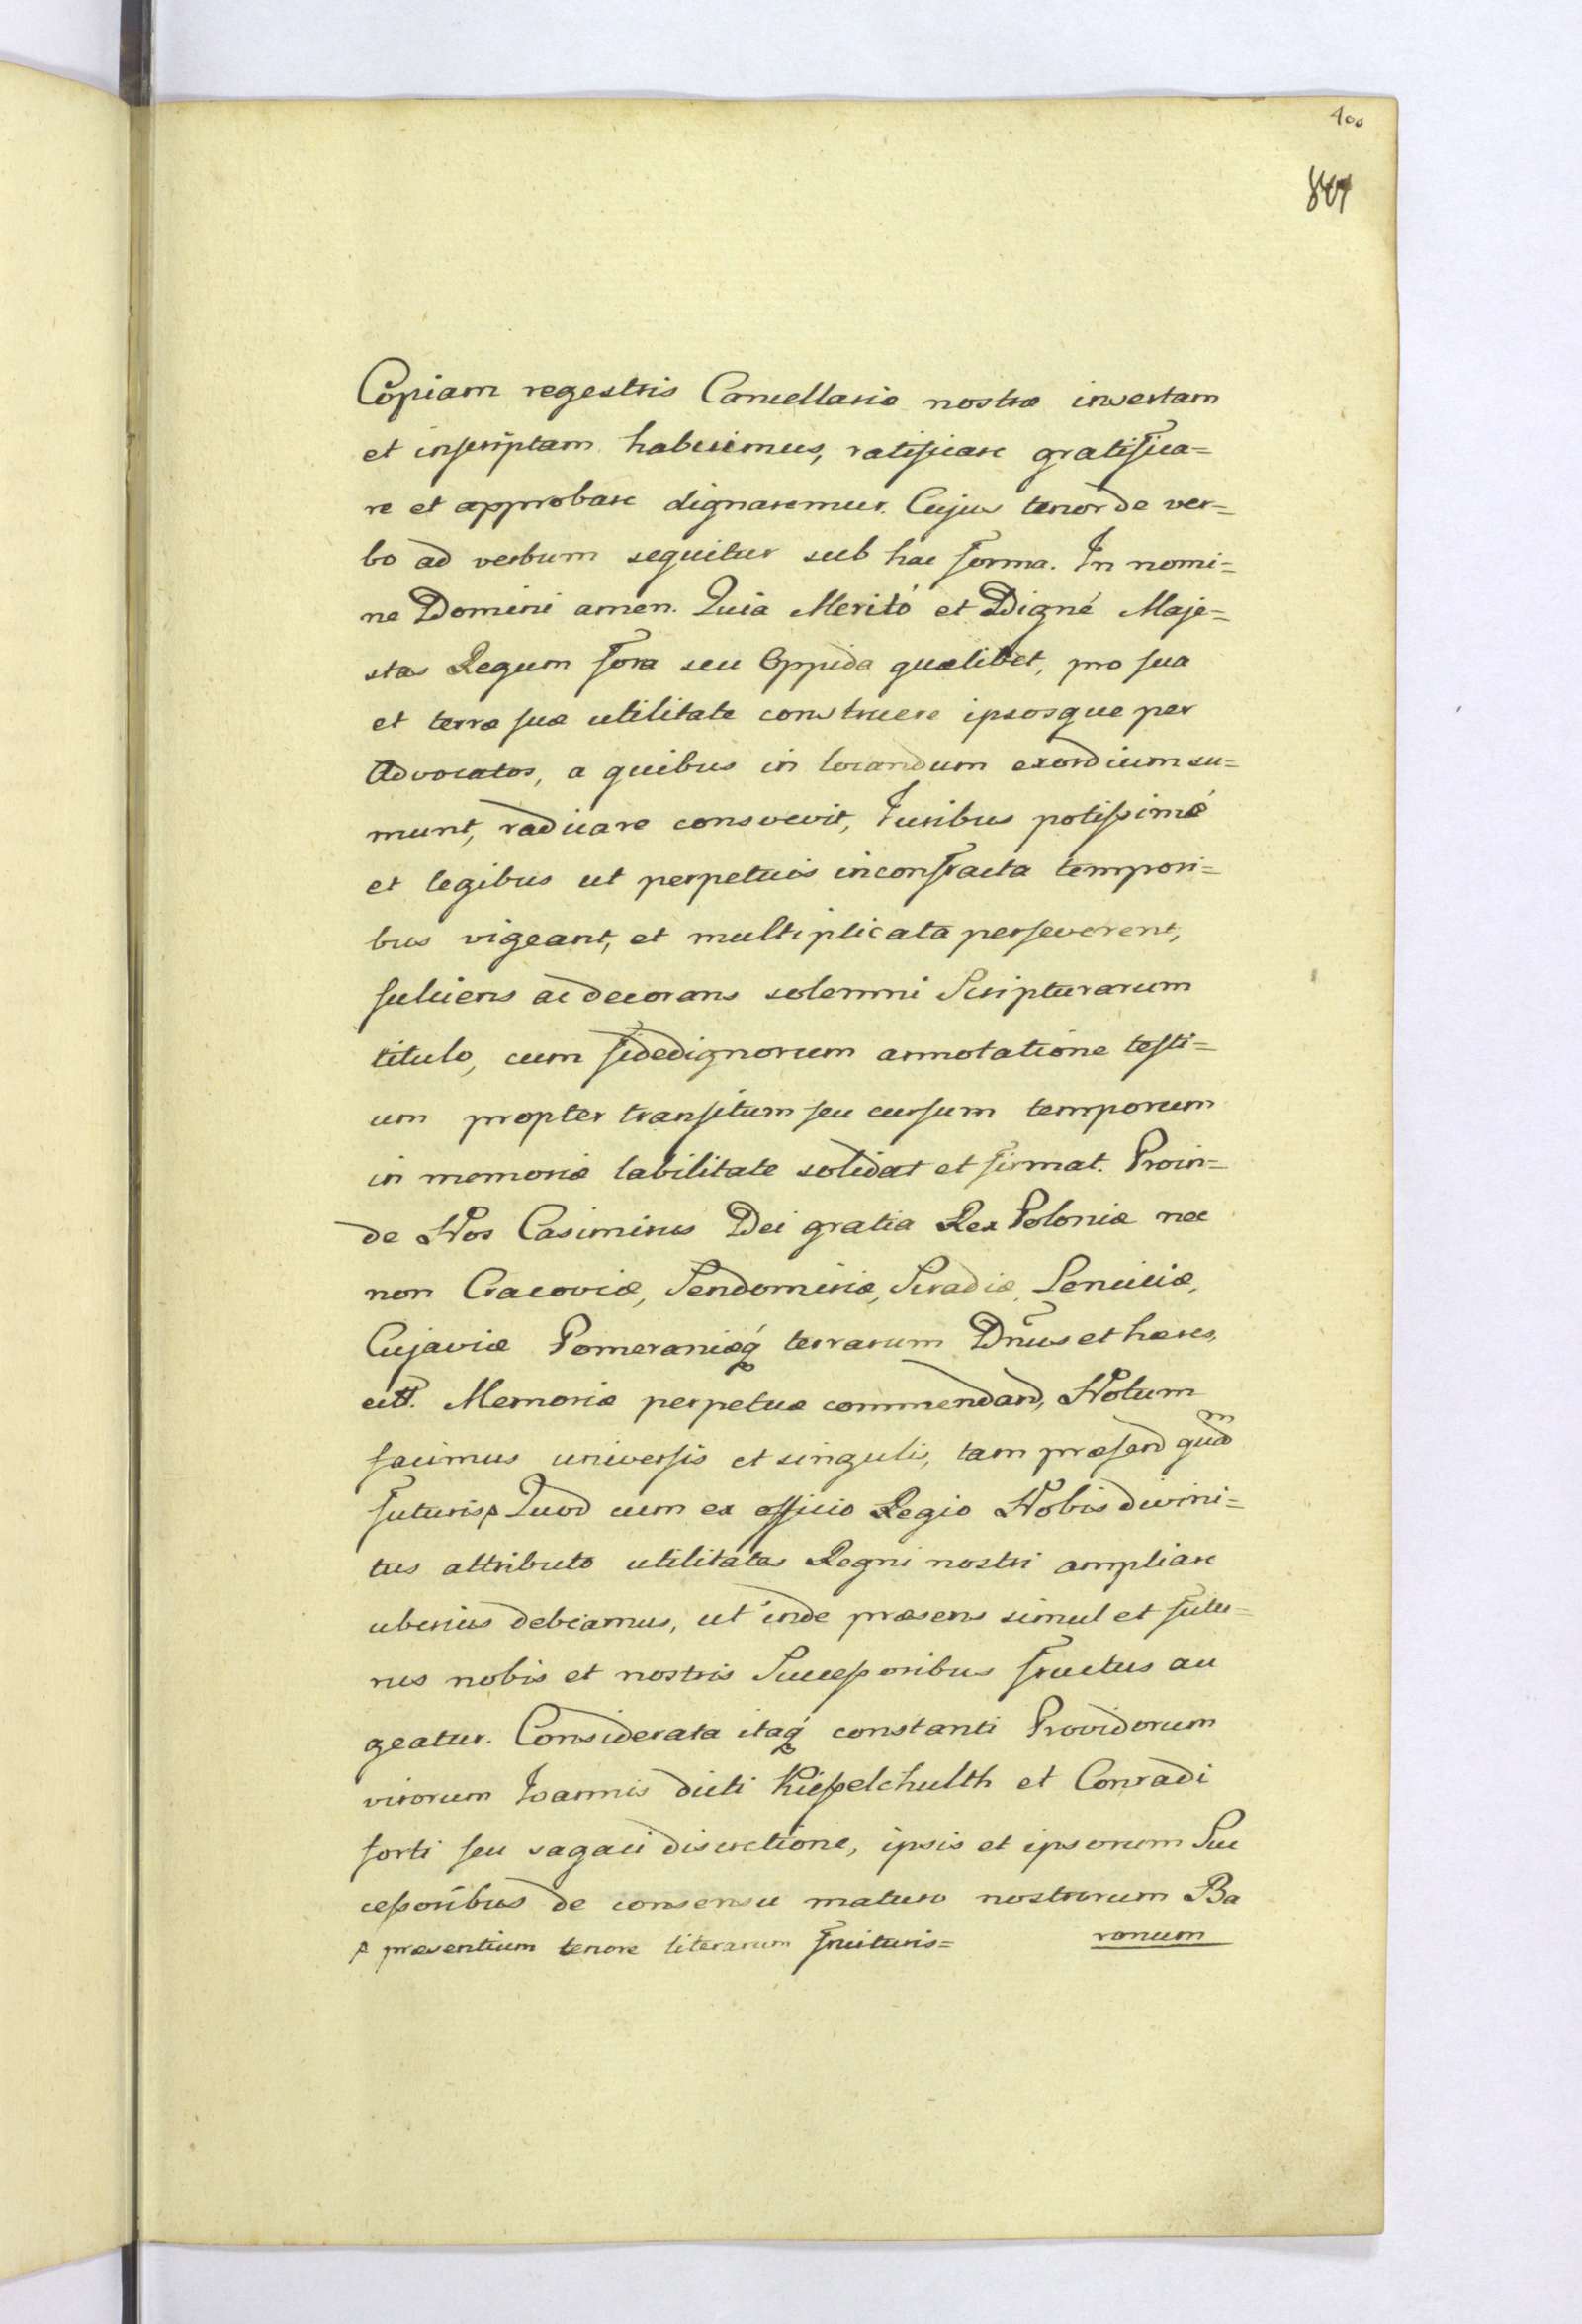 400
Copiam regestris Cancellariæ nostræ insertam
et inscriptam haberemus, ratificare gratifica=
re et approbare dignaremur. Cujus tenor de ver=
bo ad verbum sequitur sub hac forma. In nomi=
ne Domini amen. Quia Meritó et Digné Maje=
stas Regum fora seu Oppida quælibet, pro sua
et terræ suæ utilitate construere ipsosque per
Advocatos, a quibus in locandum exordium su=
munt, radicare consvevit, Juribus potissimé
et legibus ut perpetuis inconfracta tempori=
bus vigeant, et multiplicata perseverent,
fulciens ac decorans solemni Scripturarum
titulo, cum fidedignorum annotatione testi=
um propter transitum seu cursum temporum
in memoriæ labilitate solidat et firmat. Proin=
de Nos Casimirus Dei gratia Rex Poloniæ nec
non Cracoviæ, Sendomiriæ, Siradiæ, Lenciciæ,
Cujaviæ Pomeraniæq́ terrarum Dn̄us et hæres,
ett. Memoriæ perpetuæ commendand, Notum
facimus universis et singulis, tam præsend qua͞m
futuris Quod cum ex officio Regio Nobis divini=
tus attributo utilitates Regni nostri ampliare
uberius debeamus, ut inde præsens simul et futu=
rus nobis et nostris Successoribus fructus au
geatur. Considerata itaq́ constanti Providorum
virorum Joannis dicti Kiesselchulth et Conradi
forti seu sagaci discretione, ipsis et ipsorum Suc
cessoribus de consensu maturo nostrorum Ba
præsentium tenore literarum fruituris= ronum